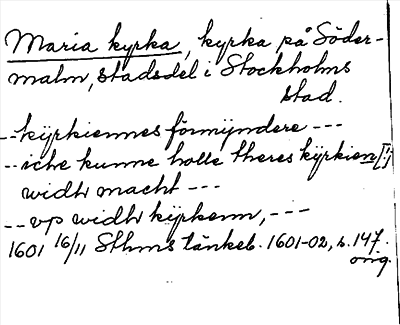 Maria kyrka, kyrka på Söder-
malm, stadsdel i Stockholms
stad.
-- kÿrkiennes förmÿndere ---
-- icke kunne holle theres kÿrkien [!]
widh macht ---
-- vp widh kÿrkenn, ---
1601 16/11 Sthms tänkeb. 1601-02, s. 147.
orig.